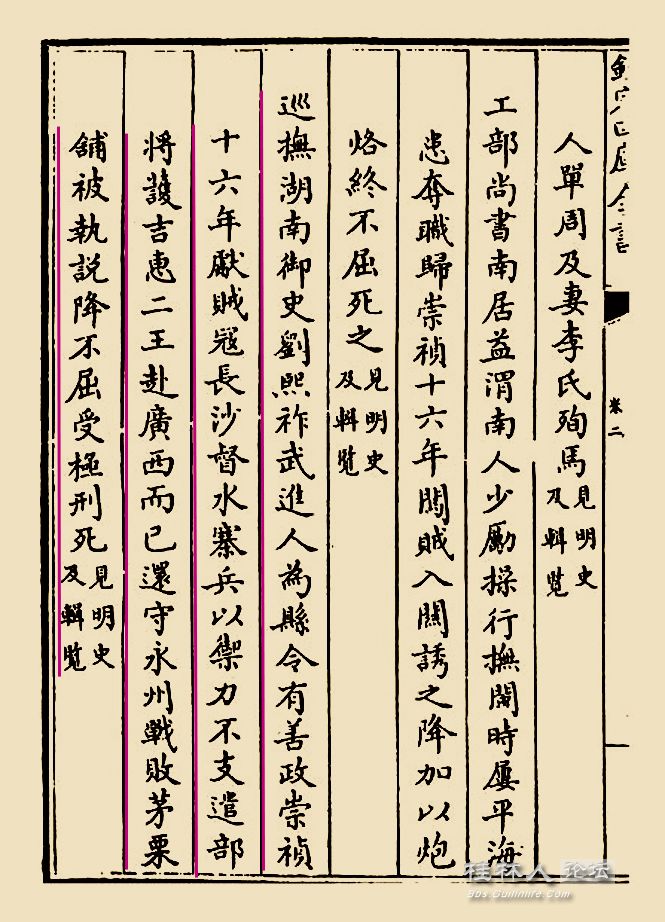 欽定四庫全書
卷二
人單周及妻李氏殉焉見明史及輯覽
工部尚書南居益渭南人少勵操行撫閩時屢平海
患奪職歸崇禎十六年闖賊入關誘之降加以炮
烙終不屈死之見明史及輯覽
巡撫湖南御史劉熙祚武進人為縣令有善政崇禎
十六年獻賊寇長沙督水寨兵以禦力不支遣部
將護吉惠二王赴廣西而已還守永州戰敗茅栗
鋪被執說降不屈受極刑死見明史及輯覽
桂林人论坛
bbs.Guilinlife.com